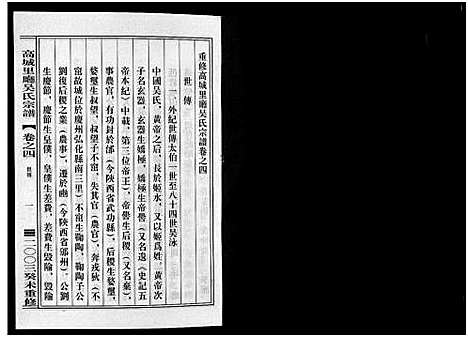 重修高城里廳吴氏宗譜卷之四
世傳
一、外紀世傳太伯一世至八十四世吴泳
中國吴氏，黃帝之后，長於姬水，又以姬爲姓，黃帝次
子名玄囂，玄囂生嬌極，嬌極生帝嚳（又名遠（史記五
帝本紀）中載，第三位帝王），帝嚳生后稷（又名棄，
事農官，有功封於邰（今陝西省武功縣），后稷生婺璽，
婺璽生叔望，叔望子不窋，失其官（農官），奔戎狄（不
窋故城位於慶州弘化縣南三里）不窋生鞠陶，鞠陶子公
劉復后稷之業（農事），遷於豳（今陝西省邠州），公劉
生慶節，慶節生皇僕，皇僕生差費，差費生毀隃，毀隃
高城里廳吴氏宗譜
【卷之四
世傳
一
二〇〇三癸未重修